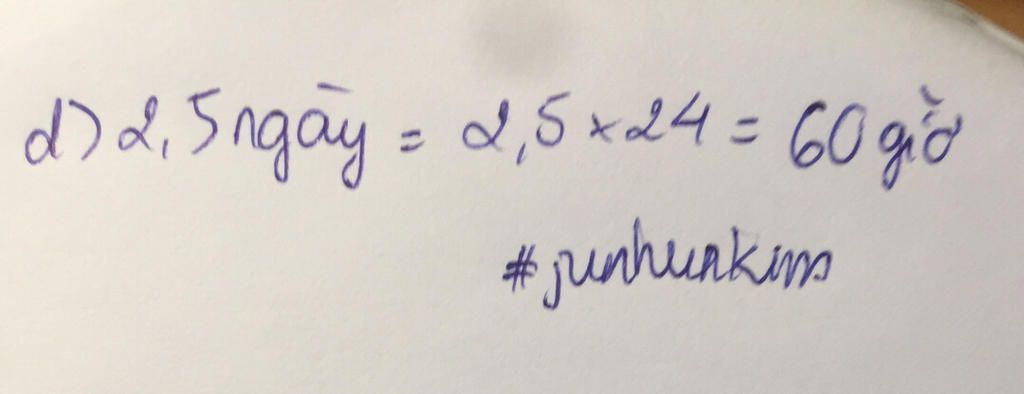 d) 2,5 ngày = 2,5 × 24 = 60 giờ
#junhunkim